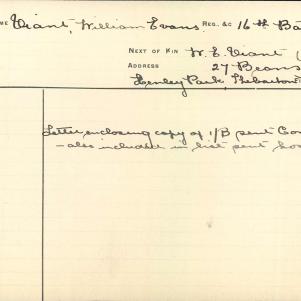 ME Viant, William Evans. REG. &C 16th Ba
NEXT OF KIN W. E. Viant (
ADDRESS 27 Beans
Henley Park, Thebarton
Letter enclosing copy of 1/B sent Co
- also included in list sent